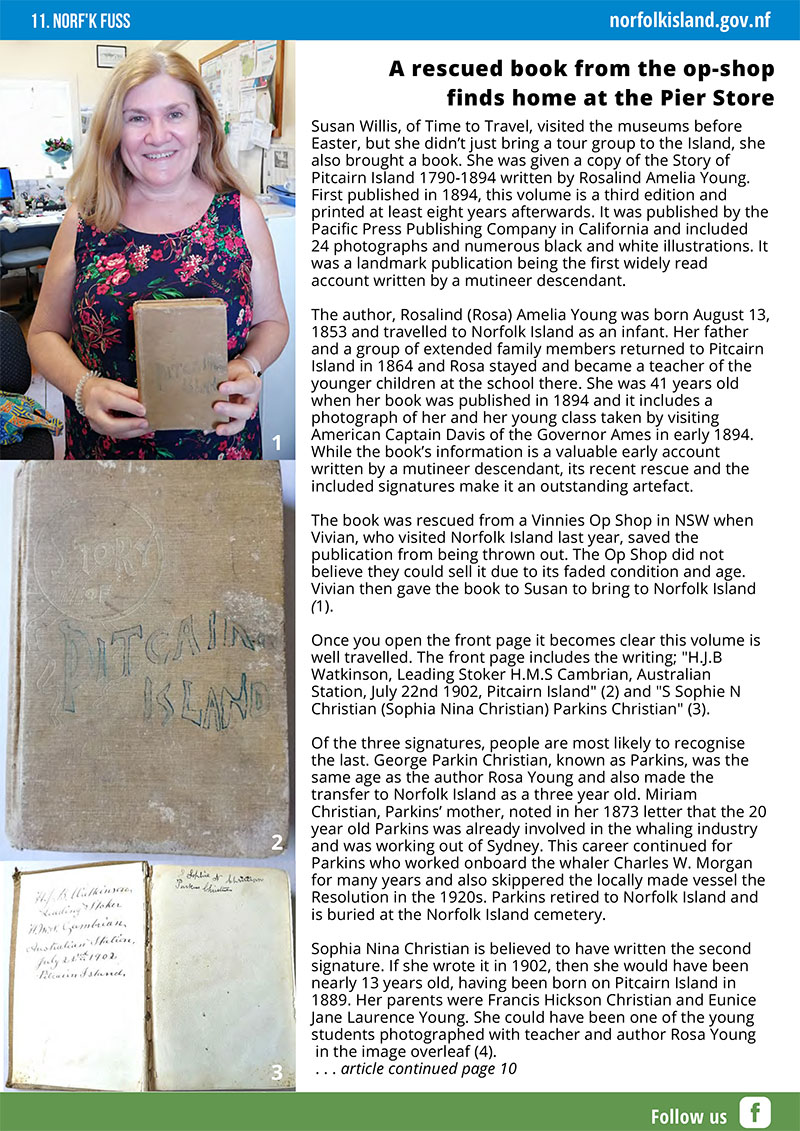 11. NORF'K FUSS
norfolkisland.gov.nf
A rescued book from the op-shop
finds home at the Pier Store
Susan Willis, of Time to Travel, visited the museums before
Easter, but she didn’t just bring a tour group to the Island, she
also brought a book. She was given a copy of the Story of
Pitcairn Island 1790-1894 written by Rosalind Amelia Young.
First published in 1894, this volume is a third edition and
printed at least eight years afterwards. It was published by the
Pacific Press Publishing Company in California and included
24 photographs and numerous black and white illustrations. It
was a landmark publication being the first widely read
account written by a mutineer descendant.
The author, Rosalind (Rosa) Amelia Young was born August 13,
1853 and travelled to Norfolk Island as an infant. Her father
and a group of extended family members returned to Pitcairn
Island in 1864 and Rosa stayed and became a teacher of the
younger children at the school there. She was 41 years old
when her book was published in 1894 and it includes a
photograph of her and her young class taken by visiting
American Captain Davis of the Governor Ames in early 1894.
While the book’s information is a valuable early account
written by a mutineer descendant, its recent rescue and the
included signatures make it an outstanding artefact.
The book was rescued from a Vinnies Op Shop in NSW when
Vivian, who visited Norfolk Island last year, saved the
publication from being thrown out. The Op Shop did not
believe they could sell it due to its faded condition and age.
Vivian then gave the book to Susan to bring to Norfolk Island
(1).
Once you open the front page it becomes clear this volume is
well travelled. The front page includes the writing; "H.J.B
Watkinson, Leading Stoker H.M.S Cambrian, Australian
Station, July 22nd 1902, Pitcairn Island" (2) and "S Sophie N
Christian (Sophia Nina Christian) Parkins Christian" (3).
Of the three signatures, people are most likely to recognise
the last. George Parkin Christian, known as Parkins, was the
same age as the author Rosa Young and also made the
transfer to Norfolk Island as a three year old. Miriam
Christian, Parkins’ mother, noted in her 1873 letter that the 20
year old Parkins was already involved in the whaling industry
and was working out of Sydney. This career continued for
Parkins who worked onboard the whaler Charles W. Morgan
for many years and also skippered the locally made vessel the
Resolution in the 1920s. Parkins retired to Norfolk Island and
is buried at the Norfolk Island cemetery.
Sophia Nina Christian is believed to have written the second
signature. If she wrote it in 1902, then she would have been
nearly 13 years old, having been born on Pitcairn Island in
1889. Her parents were Francis Hickson Christian and Eunice
Jane Laurence Young. She could have been one of the young
students photographed with teacher and author Rosa Young
in the image overleaf (4).
. . . article continued page 10
PITCAIRN
ISLAND
1
STORY
OF
PITCAIRN
ISLAND
2
H.J.B Watkinson,
Leading Stoker
H.M.S Cambrian,
Australian Station,
July 22nd 1902,
Pitcairn Island.
S Sophie N Christian
Parkins Christian
3
Follow us
f